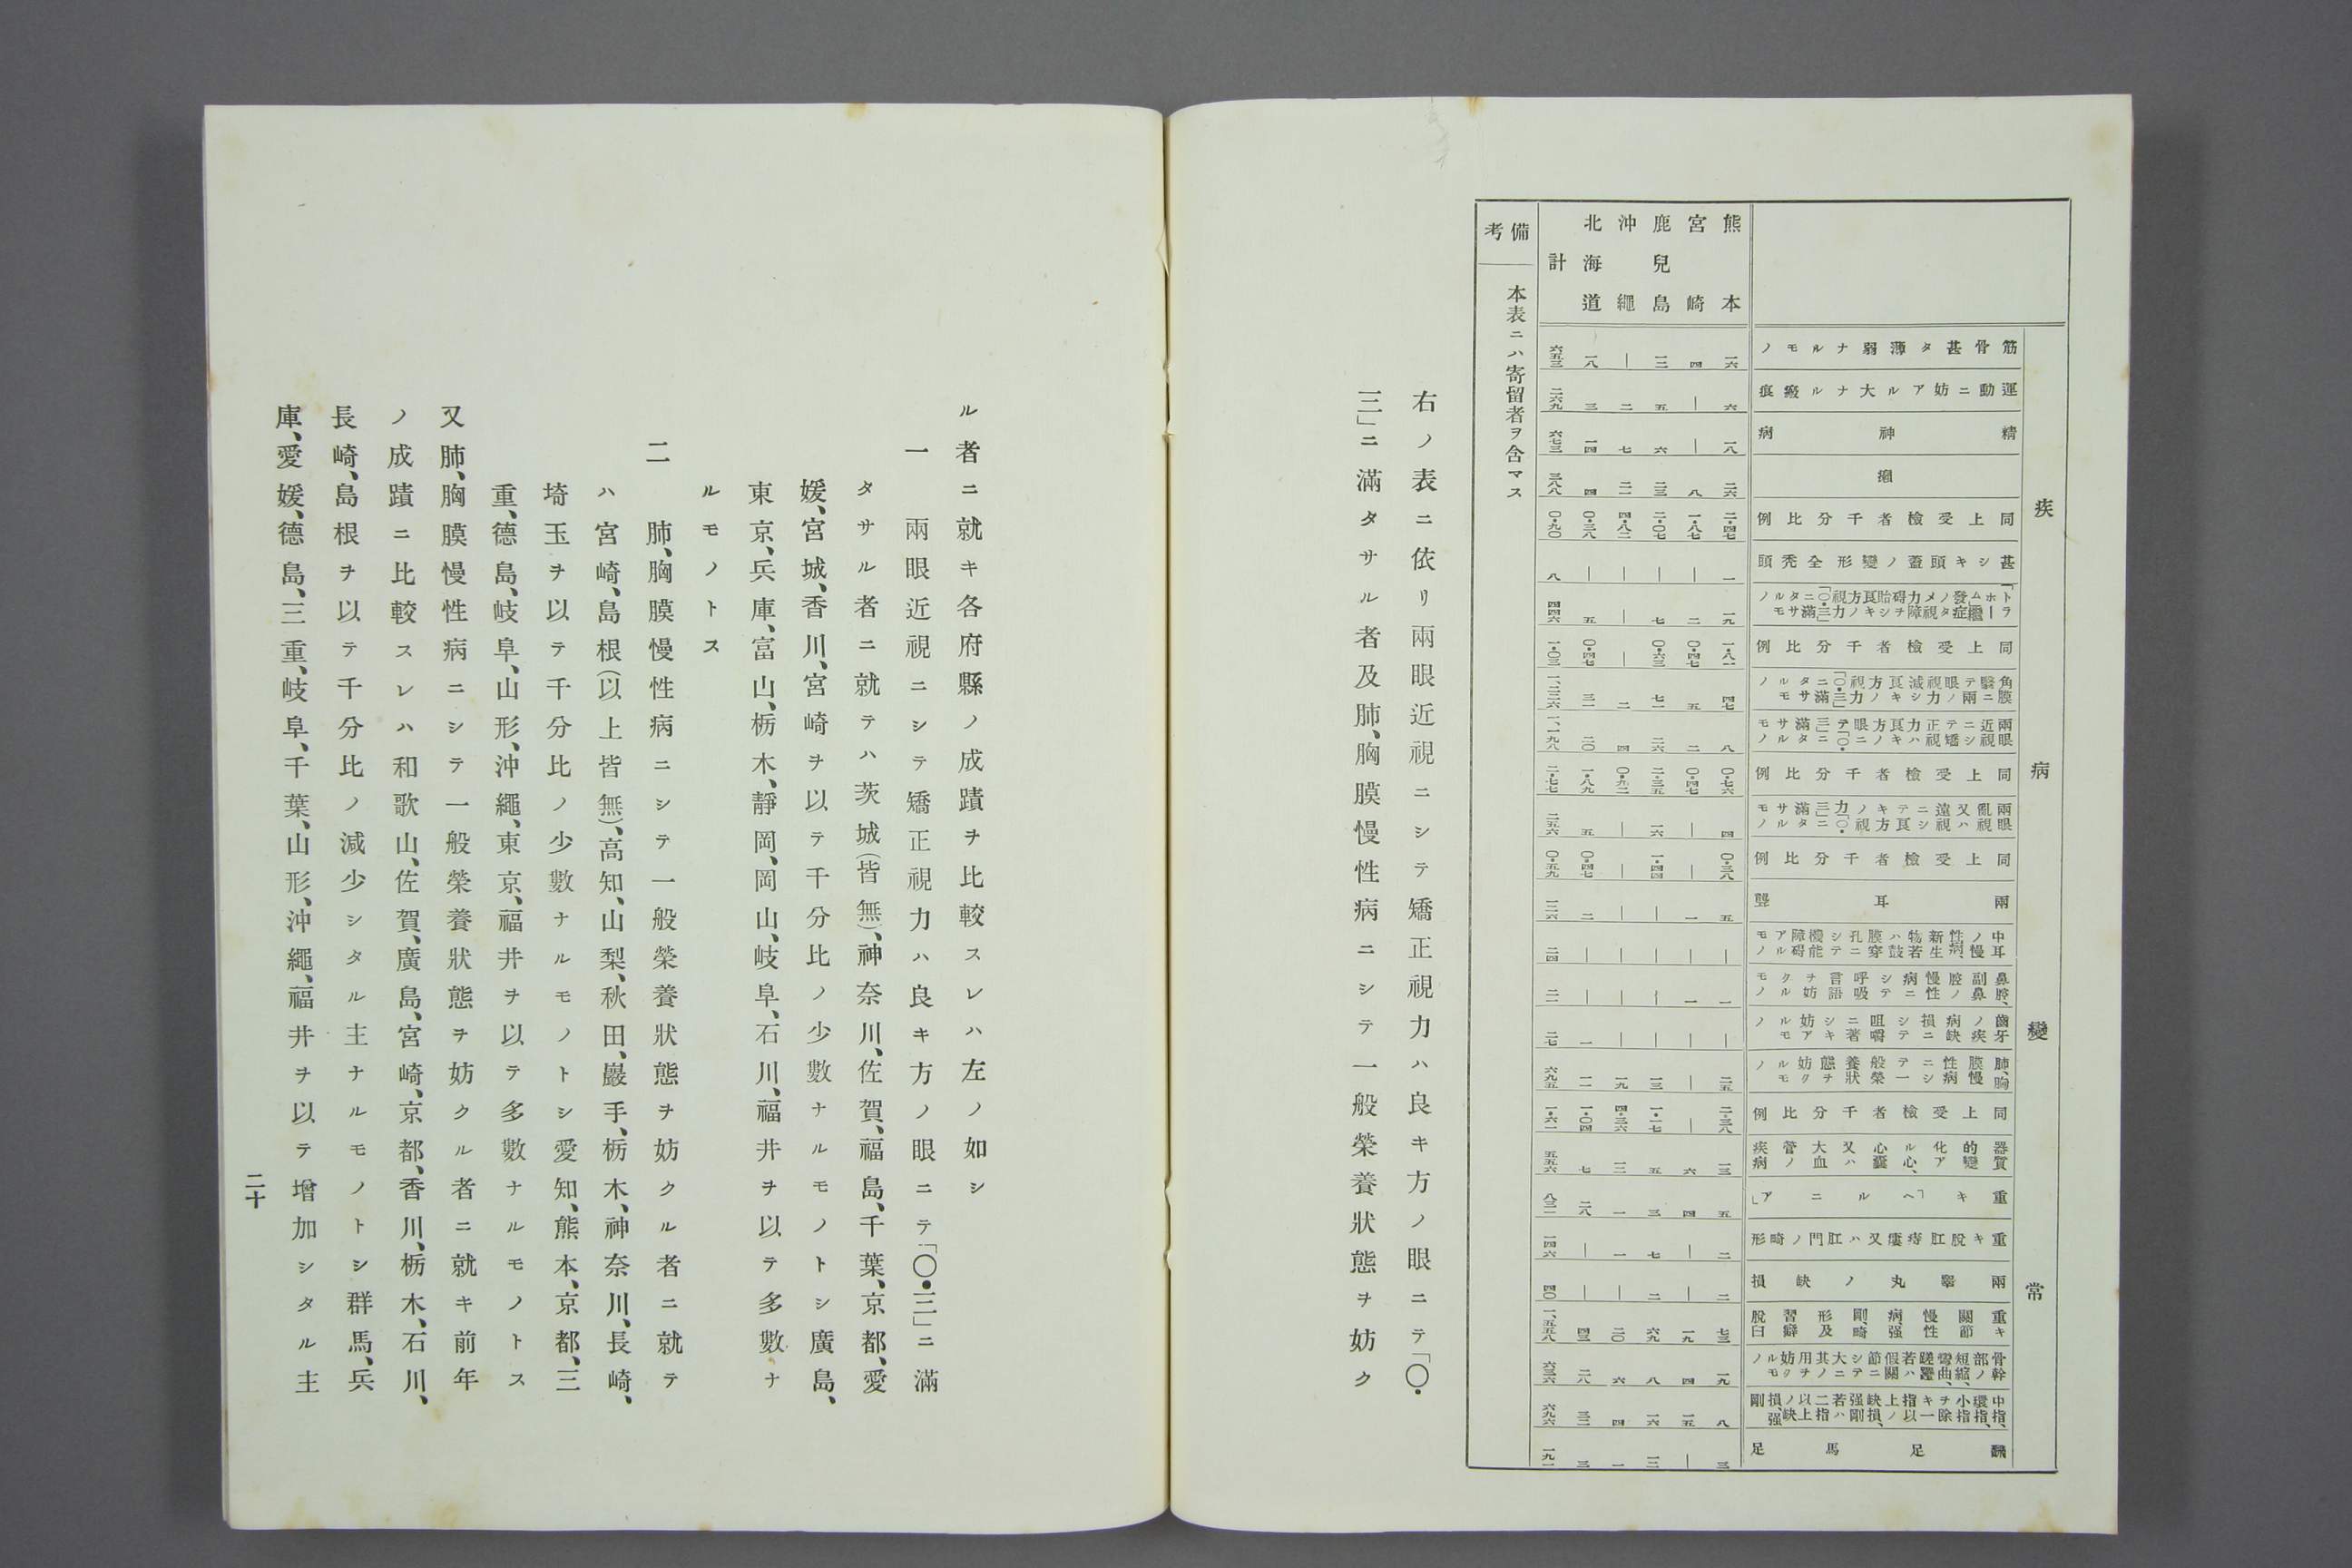 疾病變常
筋骨甚タ薄弱ナルモノ
運動ニ妨アル大ナル瘢痕
精神病
癩
同上受檢者千分比例
甚シキ頭蓋ノ變形全禿頭
「トラホーム」繼發症ノタメ視力障碍ヲ貽シ良キ方ノ視力「〇・三」ニ滿タサルモノ
同上受檢者千分比例
角膜翳ニテ兩眼ノ視力減シ良キ方ノ視力「〇・三」ニ滿タサルモノ
兩眼近視ニシテ矯正視力ハ良キ方ノ眼ニテ「〇・三」ニ滿タサルモノ
同上受檢者千分比例
兩眼亂視又ハ遠視ニシテ良キ方ノ視力「〇・三」ニ滿タサルモノ
同上受檢者千分比例
兩耳聾
中耳ノ慢性病、新生物若ハ鼓膜穿孔ニシテ機能障碍アルモノ
鼻腔、副鼻腔ノ慢性病ニシテ呼吸言語ヲ妨クルモノ
齒牙ノ疾病缺損ニシテ咀嚼ニ著シキ妨アルモノ
肺、胸膜慢性病ニシテ一般榮養狀態ヲ妨クルモノ
同上受檢者千分比例
器質的變化アル心、心囊又ハ大血管ノ疾病
重キ「ヘルニア」
重キ脫肛痔瘻又ハ肛門ノ畸形
兩睾丸ノ缺損
重キ關節慢性病、剛强、畸形及習癖脫臼
骨幹部ノ短縮、彎曲、若ハ假關節ニシテ大ニ其ノ用ヲ妨クルモノ
中指、環指、小指ヲ除キ一指以上ノ缺損、剛强若ハ二指以上ノ缺損、剛强
翻足馬足
熊本 一六 六 一八 二六 二・四七 一 一九 一・八一 四七 八 〇・七六 四 〇・三八 五 ｜ 一 ｜ 二五 二・三八 一三 五 二 二 七三 一九 八 三
宮崎 四 ｜ ｜ 八 一・八七 ｜ 二 〇・四七 五 二 〇・四七 ｜ ｜ 一 ｜ 一 ｜ ｜ ｜ 六 四 ｜ ｜ 一九 四 一五 ｜
鹿兒島 一二 五 六 二三 二・〇七 ｜ 七 〇・六三 七一 二六 二・三五 一六 一・四四 ｜ ｜ ｜ ｜ 一三 一・一七 五 三 七 二 六九 八 一六 一二
沖繩 ｜ 二 七 二一 四・八二 ｜ ｜ ｜ 二 四 〇・九二 ｜ ｜ ｜ ｜ ｜ ｜ 一九 四・三六 一二 一 一 ｜ 二〇 六 四 一
北海道 一八 三 一四 四 〇・三八 ｜ 五 〇・四七 三一 二〇 一・八九 五 〇・四七 二 ｜ ｜ 一 一一 一・〇四 七 二八 ｜ ｜ 四三 二八 三二 三
計 六五三 二六九 六七三 三八八 〇・九〇 八 四四六 一・〇三 一、二三六 一、一九八 二・七七 二五六 〇・五九 一二六 二四 二一 二七 六九五 一・六一 五五六 八三二 一四六 四〇 一、五五八 六三六 六九六 一九一
備考 本表ニハ寄留者ヲ含マス
右ノ表ニ依リ兩眼近視ニシテ矯正視力ハ良キ方ノ眼ニテ「〇・
三」ニ滿タサル者及肺、胸膜慢性病ニシテ一般榮養狀態ヲ妨ク
ル者ニ就キ各府縣ノ成蹟ヲ比較スレハ左ノ如シ
一 兩眼近視ニシテ矯正視力ハ良キ方ノ眼ニテ「〇・三」ニ滿
タサル者ニ就テハ茨城(皆無)、神奈川、佐賀、福島、千葉、京都、愛
媛、宮城、香川、宮崎ヲ以テ千分比ノ少數ナルモノトシ廣島、
東京、兵庫、富山、栃木、靜岡、岡山、岐阜、石川、福井ヲ以テ多數ナ
ルモノトス
二 肺、胸膜慢性病ニシテ一般榮養狀態ヲ妨クル者ニ就テ
ハ宮崎、島根(以上皆無)、高知、山梨、秋田、巖手、栃木、神奈川、長崎、
埼玉ヲ以テ千分比ノ少數ナルモノトシ愛知、熊本、京都、三
重、德島、岐阜、山形、沖繩、東京、福井ヲ以テ多數ナルモノトス
又肺、胸膜慢性病ニシテ一般榮養狀態ヲ妨クル者ニ就キ前年
ノ成蹟ニ比較スレハ和歌山、佐賀、廣島、宮崎、京都、香川、栃木、石川、
長崎、島根ヲ以テ千分比ノ減少シタル主ナルモノトシ群馬、兵
庫、愛媛、德島、三重、岐阜、千葉、山形、沖繩、福井ヲ以テ增加シタル主
二十